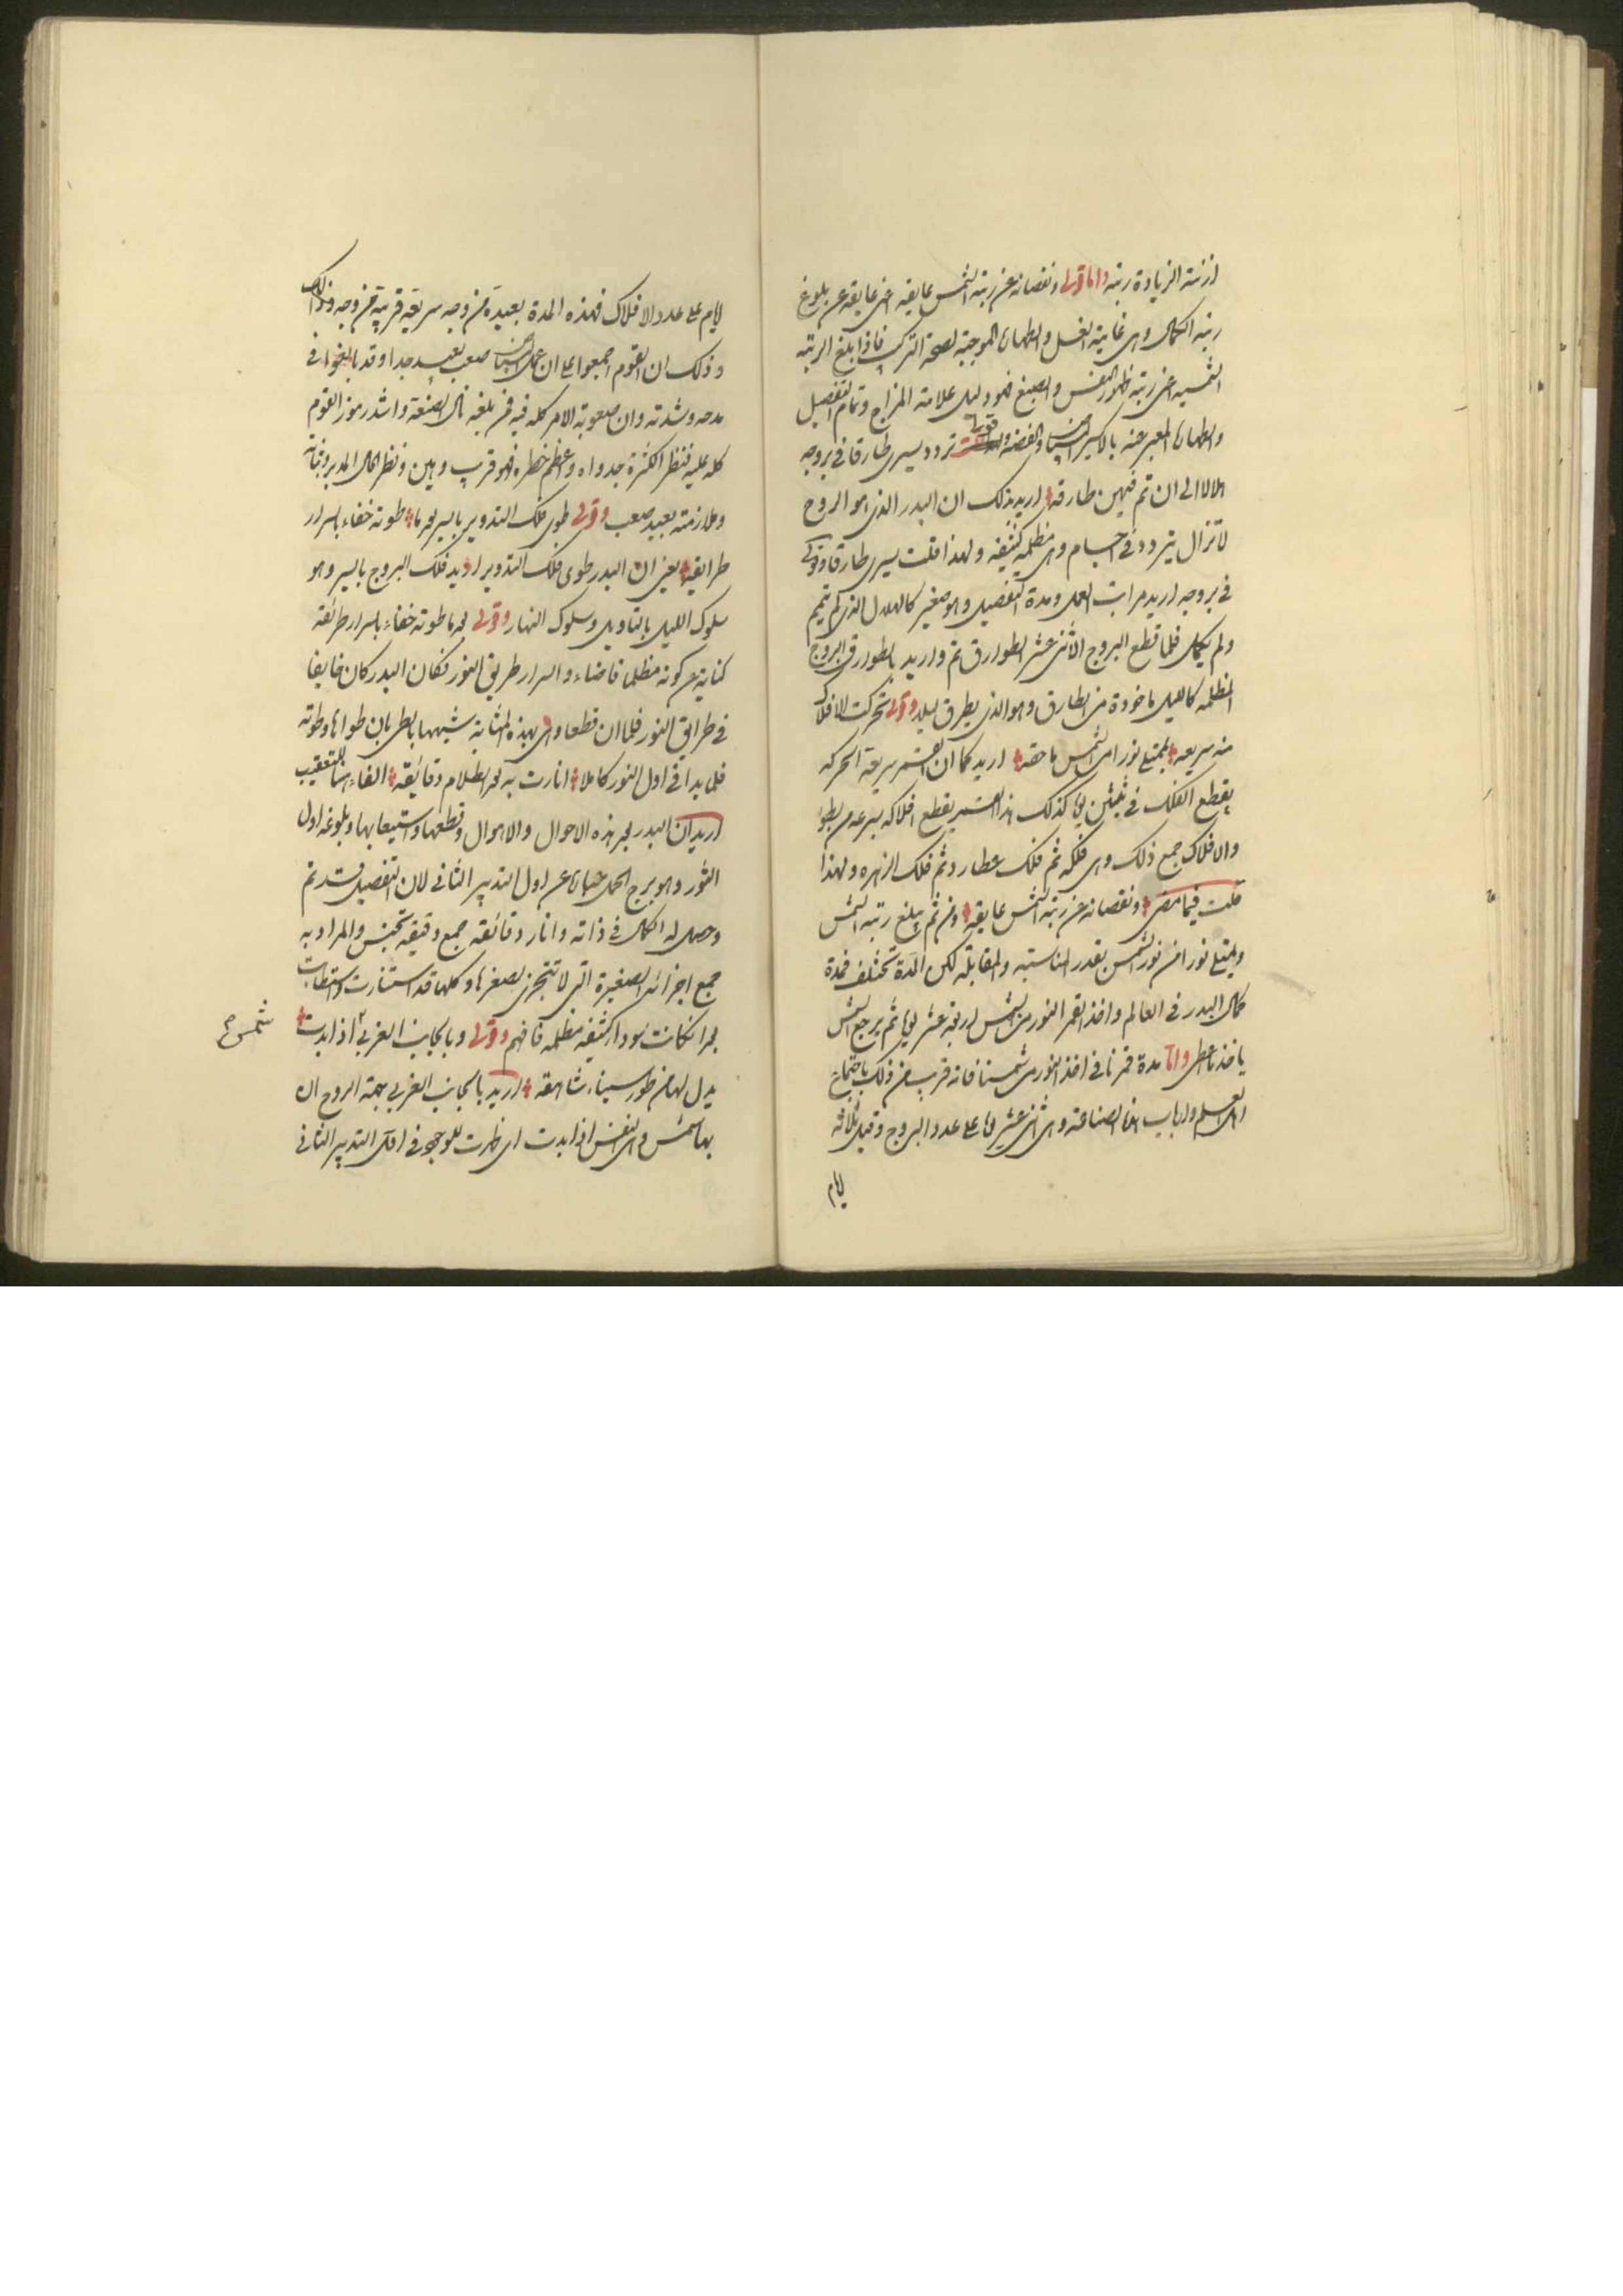 ازمنة الزيادة رتبة واما قولى ونقصانه عن رتبة الشمس عايقه اعنى عايقه عن بلوغ
رتبة الكمال وهى غاية الغسل والطهارة الموجبة لصحة التركيب فاذا بلغ الرتبة
الشمسيه اعنى رتبة ظهور النفس والصبغ فهو دليل علامة المزاج وتمام التفصيل
والطهارة المعبر عنه بالاكسير والفضه وقولى تردد يسرى طارقا فى بروجه
هلالا الى ان تم فيهن طارقه اريد بذلك ان البدر الذى هو الروح
لا تزال يتردد فى اجسام وهى مظلمه كثيفه ولهذا قلت يسرى طارقا وقولى
فى بروجه اريد مراتب العمل ومدة التفصيل وهو صغير كالهلال الذى لم يتمم
ولم يكمل فلما قطع البروج الاثنى عشر الطوارق تم واريد بالطوارق البروج
المظلمه كالليل ماخوذة من الطارق وهو الذى يطرق ليلا وقولى تحركت الافلاك
منه سريعه ليمتلى نورا من الشمس ماحقه اريد كما ان القمر سريعة الحركه
يقطع الفلك فى ثلثين يوما كذلك هذا القمر يقطع افلاكه بسرعه من بطؤ
والافلاك جمع ذلك وهى فلكه ثم فلك عطارد ثم فلك الزهره ولهذا
قلت فيما مضى ونقصانه عن رتبة الشمس عايقه ومن ثم يبلغ رتبة الشمس
ويمتلى نورا من نور الشمس بقدر المناسبة والمقابلة لكن المدة تختلف فمدة
كمال البدر فى العالم واخذ القمر النور من الشمس اربعة عشر يوما ثم يرجع الشمس
ياخذ ما اعطى واما مدة قمرنا فى اخذ النور من شمسنا فانه قريب من ذلك باجماع
اهل العلم وارباب هذه الصناعة وهى اثنى عشر يوما على عدد البروج وقيل ثلاثة
ايام
ايام على عدد الافلاك فهذه المدة بعيدة من وجه سريعة قريبة من وجه وذلك
وذلك ان القوم اجمعوا على ان عمل صعب بعيد جدا وقد بالغوا فى
مدحه وشدته وان صعوبة الامر كله فيه فمن بلغه نال الصنعة واشد رموز القوم
كله عليه فنظر الكثرة جدواه وعظم خطره فهو قريب وهين ونظر الحال المدبر وثباته
وملازمته بعيد صعب وقولى طوى فلك التدوير بالسير بحرما طوته خفاء باسرار
طرايقه يعنى ان البدر طوى فلك التدوير اريد فلك البروج بالسير وهو
سلوك الليل بالتاويل وسلوك النهار وقولى بحرما طوته خفاء باسرار طرائقه
كناية عن كونه مظلما فاضاء والسرار طريق النور فكان البدر كان خايفا
فى طرايق النور فلما ان قطعا وهى بهذه المثابة شبهها بالطريان طواها وطوته
فلما بدا فى اول النور كاملا انارت به بحر الظلام دقايقه الفاء هنا للتعقيب
اريد ان البدر بحر هذه الاحوال والاهوال وقطعها واستيعابها وبلوغه اول
الثور وهو برج الحمل عبارة عن اول التدبير الثانى لان التفصيل قد تم
وحصل له الكمال فى ذاته وانار دقائقه جمع دقيقه تجنيس والمراد به
جميع اجزائه الصغيرة التى لا تتجزى لصغرها وكلها قد استنارت واستطابت
بحرا كانت سودا كثيفه مظلمه فافهم وقولى وبالجانب الغربى اذا بدت شمس
يدل لها من طور سيناء شاهقه اريد بالجانب الغربى جهة الروح ان
بها شمس وهى النفس اذا بدت اى ظهرت للوجود فى اول التدبير الثانى